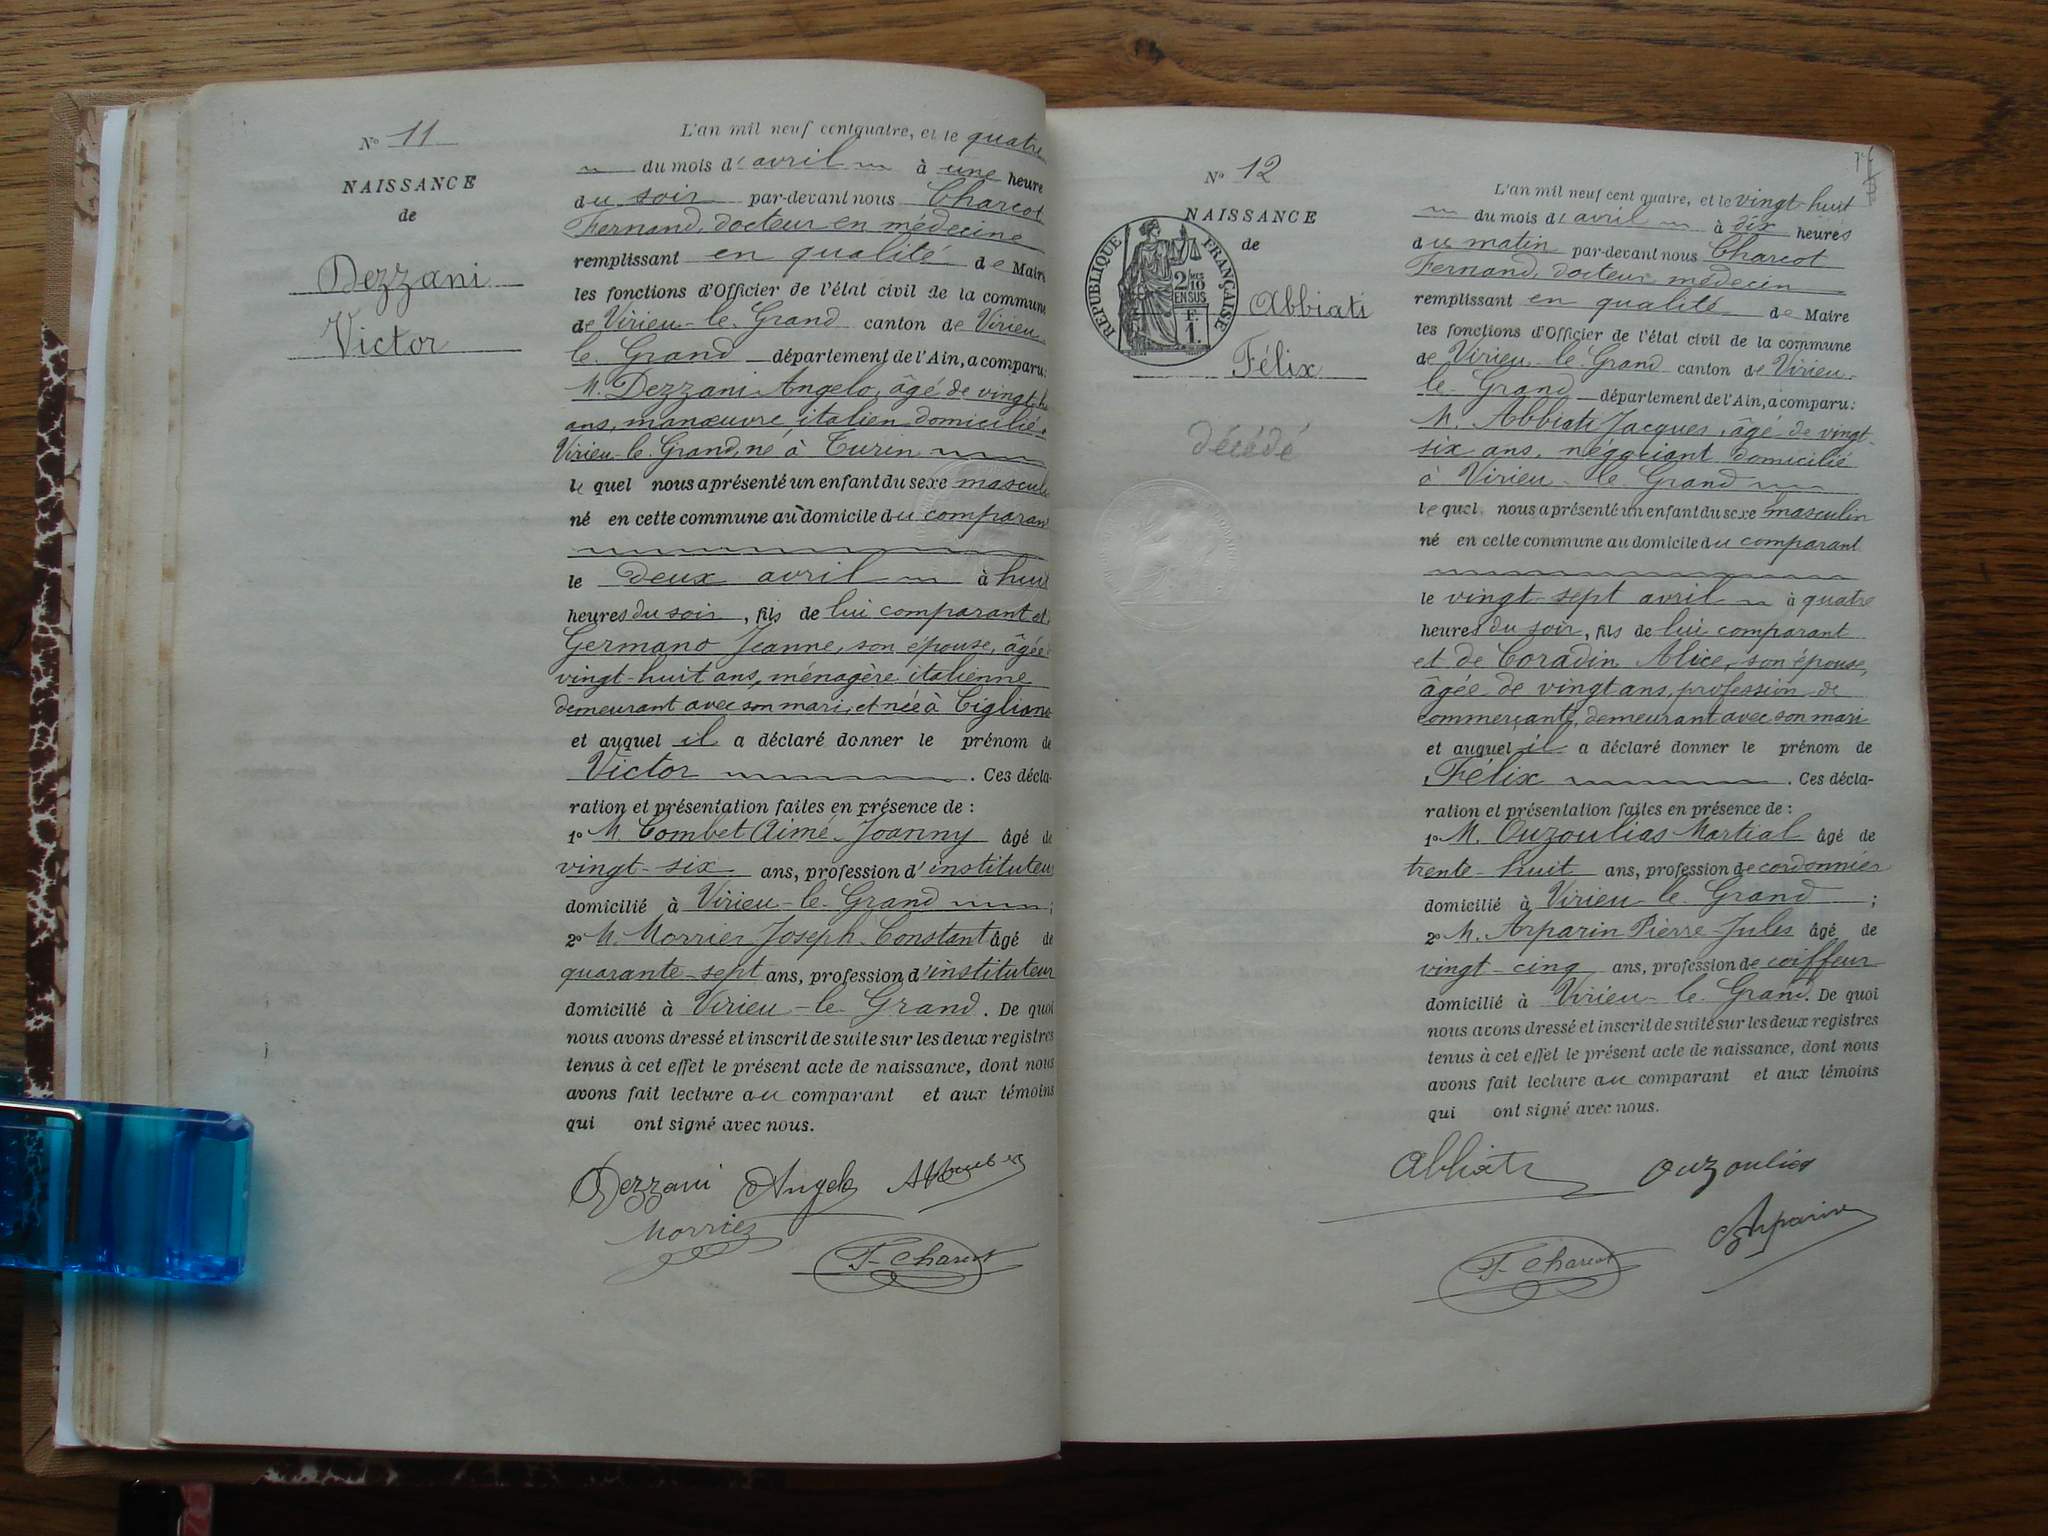 N° 11
NAISSANCE
de
Dezzani
Victor
L'an mil neuf cent quatre, et le quatre
du mois d'avril à une heure
du soir par-devant nous Charcot
Fernand, docteur en médecine
remplissant en qualité de Maire
les fonctions d'Officier de l'état civil de la commune
de Virieu-le-Grand canton de Virieu-
le-Grand département de l'Ain, a comparu:
M. Dezzani Angelo, âgé de vingt-h
ans, manœuvre italien domicilié
Virieu-le-Grand, né à Turin
le quel nous a présenté un enfant du sexe masculi
né en cette commune au domicile du comparan
le deux avril à huit
heures du soir, fils de lui comparant et
Germano Jeanne, son épouse, âgée
vingt-huit ans, ménagère italienne
demeurant avec son mari, et née à Cigliano
et auquel il a déclaré donner le prénom de
Victor . Ces décla-
ration et présentation faites en présence de :
1° M. Combet Aimé Joanny âgé de
vingt-six ans, profession d'instituteur
domicilié à Virieu-le-Grand ;
2° M. Morrier Joseph Constant âgé de
quarante-sept ans, profession d'instituteur
domicilié à Virieu-le Grand. De quoi
nous avons dressé et inscrit de suite sur les deux registres
tenus à cet effet le présent acte de naissance, dont nous
avons fait lecture au comparant et aux témoins
qui ont signé avec nous.
Dezzani Angelo
Morrier
F. Charcot
N° 12
NAISSANCE
de
RÉPUBLIQUE FRANÇAISE
2/10 EN SUS
F. 1.
Abbiati
Félix
décédé
L'an mil neuf cent quatre, et le vingt-huit
du mois d'avril à dix heures
du matin par-devant nous Charcot
Fernand, docteur médecin
remplissant en qualité de Maire
les fonctions d'Officier de l'état civil de la commune
de Virieu-le-Grand canton de Virieu-
le-Grand département de l'Ain, a comparu:
M. Abbiati Jacques, âgé de vingt-
six ans, négociant domicilié
à Virieu-le-Grand
le quel nous a présenté un enfant du sexe masculin
né en cette commune au domicile du comparant
le vingt-sept avril à quatre
heures du soir, fils de lui comparant
et de Coradin Alice, son épouse,
âgée de vingt ans, profession de
commerçante, demeurant avec son mari
et auquel il a déclaré donner le prénom de
Félix . Ces décla-
ration et présentation faites en présence de :
1° M. Ouzoulias Martial âgé de
trente-huit ans, profession de cordonnier
domicilié à Virieu-le-Grand ;
2° M. Arparin Pierre-Jules âgé de
vingt-cinq ans, profession de coiffeur
domicilié à Virieu-le-Grand. De quoi
nous avons dressé et inscrit de suite sur les deux registres
tenus à cet effet le présent acte de naissance, dont nous
avons fait lecture au comparant et aux témoins
qui ont signé avec nous.
Abbiati Ouzoulias
Arparin
F. Charcot